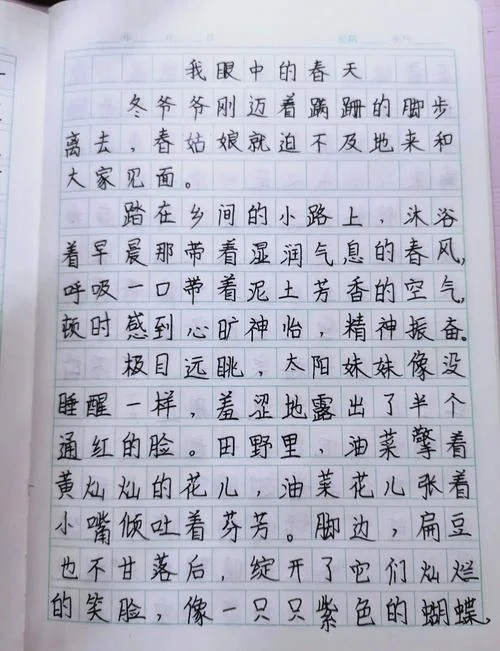 我眼中的春天
冬爷爷刚迈着蹒跚的脚步
离去，春姑娘就迫不及地来和
大家见面。
踏在乡间的小路上，沐浴
着早晨那带着湿润气息的春风，
呼吸一口带着泥土芳香的空气，
顿时感到心旷神怡，精神振奋。
极目远眺，太阳妹妹像没
睡醒一样，羞涩地露出了半个
通红的脸。田野里，油菜擎着
黄灿灿的花儿，油菜花儿张着
小嘴倾吐着芬芳。脚边，扁豆
也不甘落后，绽开了它们灿烂
的笑脸，像一只只紫色的蝴蝶，